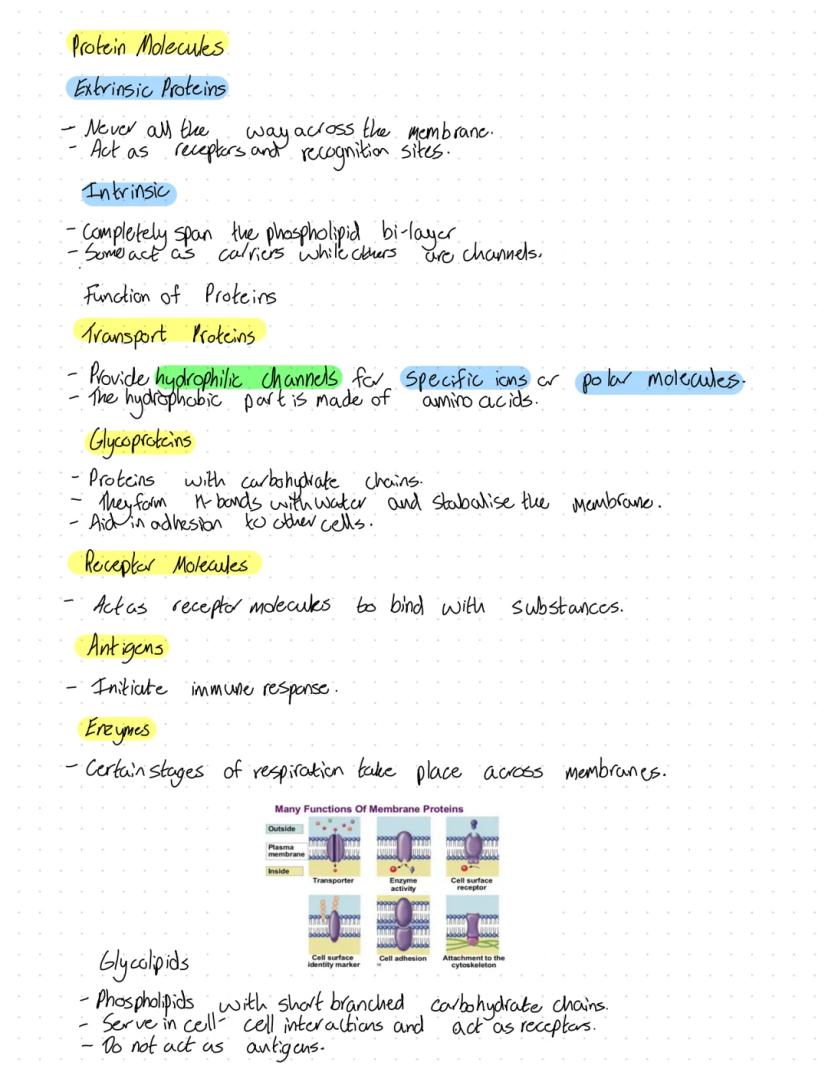 Protein Molecules
Extrinsic Proteins
- Never all the way across the membrane.
- Act as receptors and recognition sites.
Intrinsic
- Completely span the phospholipid bi-layer
- Some act as carriers while others are channels.
Function of Proteins
Transport Proteins
- Provide hydrophilic channels for specific ions or polar molecules.
- The hydrophobic part is made of amino acids.
Glycoproteins
- Proteins with carbohydrate chains.
- They form H-bonds with water and stabalise the membrane.
- Aid in adhesion to other cells.
Receptor Molecules
- Act as receptor molecules to bind with substances.
Antigens
- Initiate immune response.
Enzymes
- Certain stages of respiration take place across membranes.
Many Functions Of Membrane Proteins
Outside
Plasma
membrane
Inside
Transporter
Enzyme
activity
Cell surface
receptor
Cell surface
identity marker
Cell adhesion
Attachment to the
cytoskeleton
Glycolipids
- Phospholipids with short branched carbohydrate chains.
- Serve in cell-cell interactions and act as receptors.
- Do not act as antigens.